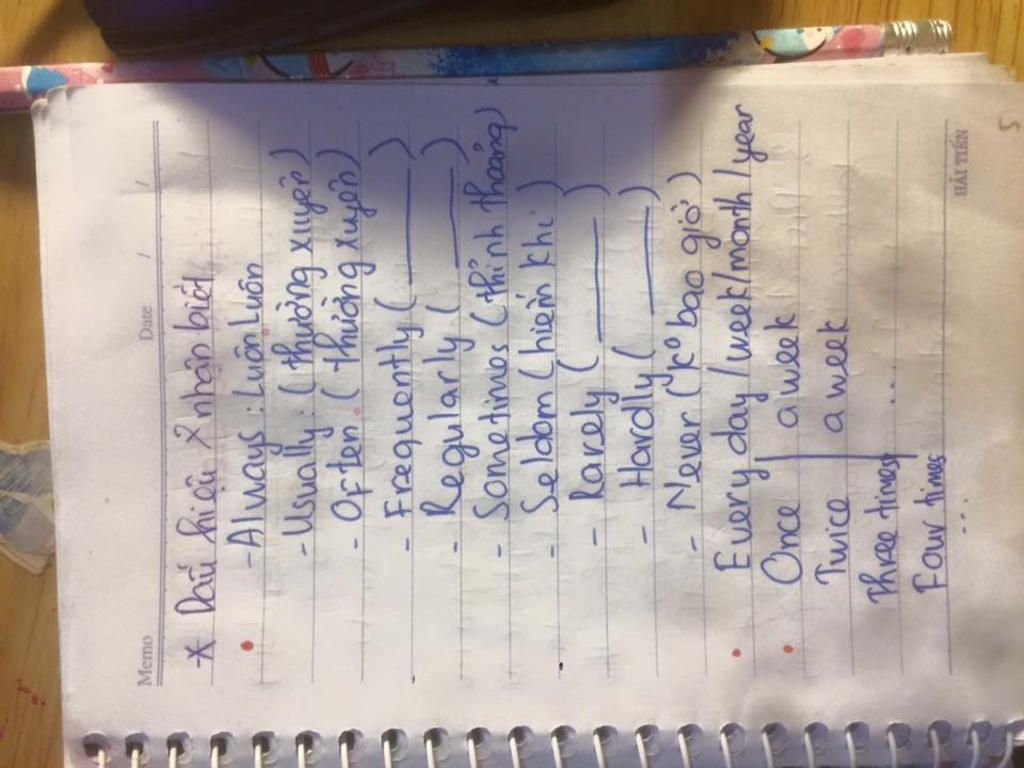 Memo Date / /
* Dấu hiệu nhận biết
- Always : Luôn luôn
- Usually : ( thường xuyên )
- Often ( thường xuyên )
- Frequently ( ——— )
- Regularly ( ——— )
- Sometimes ( thỉnh thoảng )
- Seldom ( hiếm khi )
- Rarely ( ——— )
- Hardly ( ——— )
- Never ( kº bao giờ )
Every day / week / month / year
Once a week
Twice a week
Three times ...
Four times
...
HẢI TIẾN
5